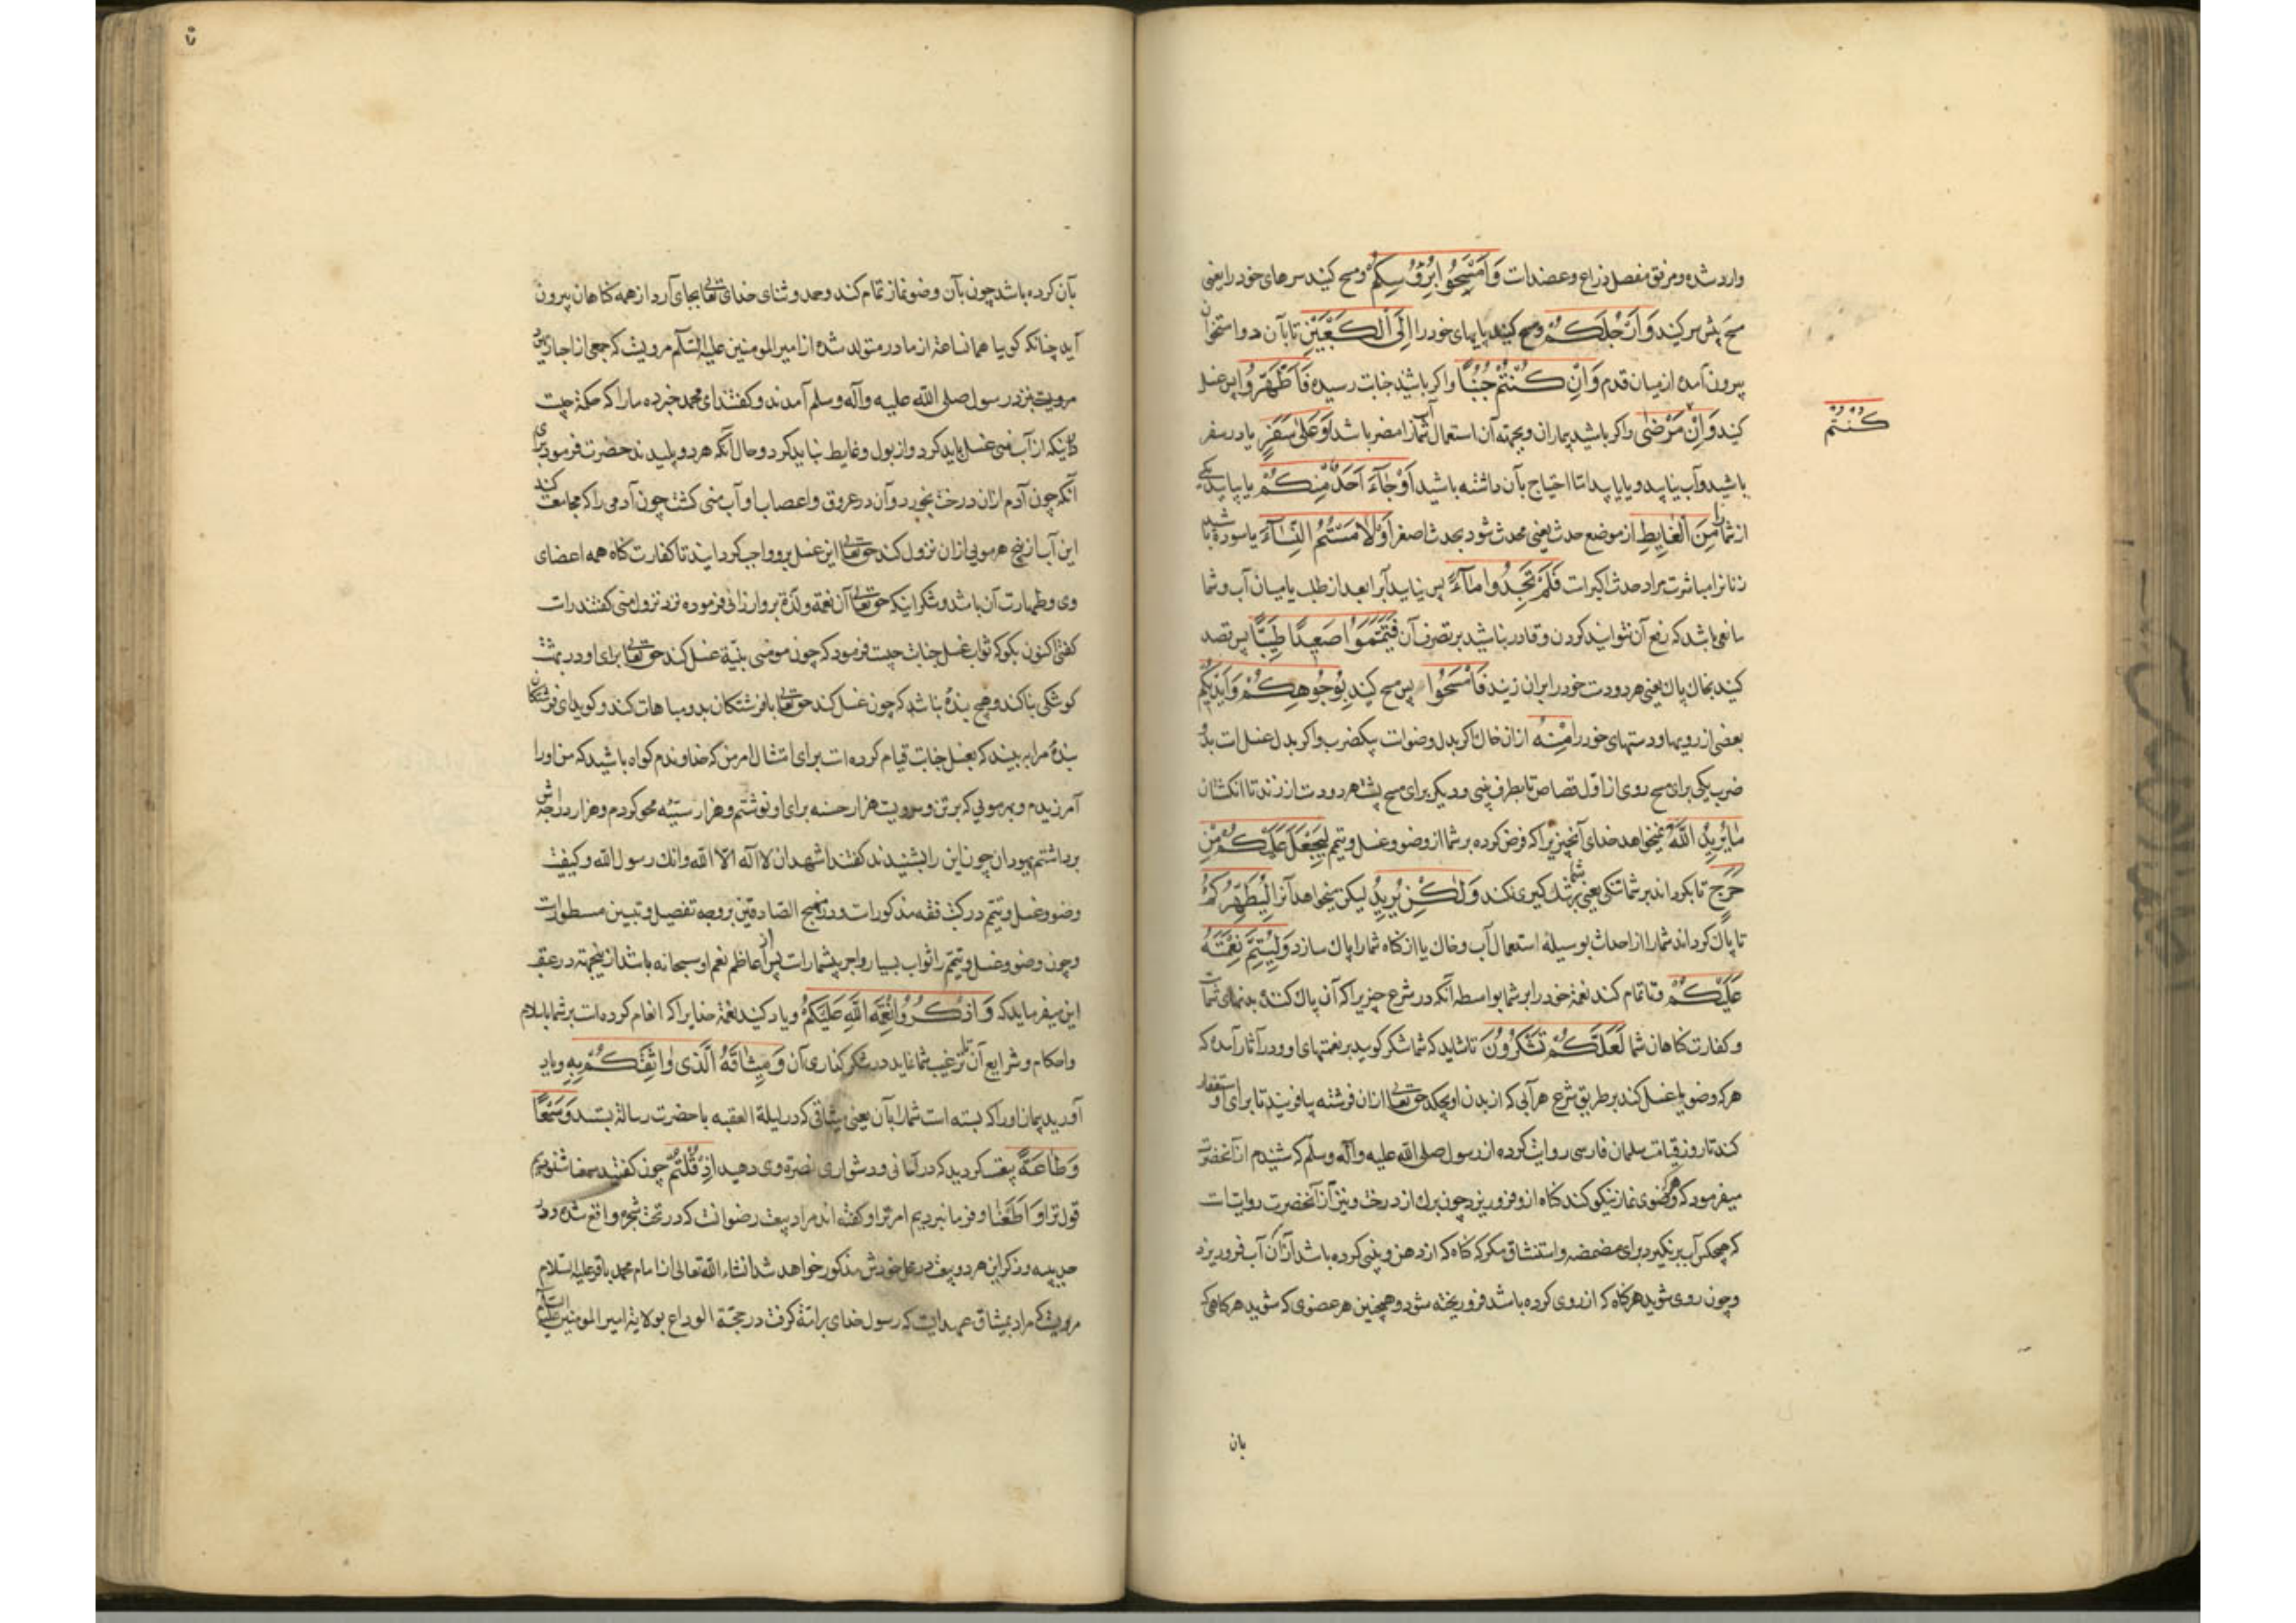 وارد شده و مرفق مفصل ذراع و عضدات وَامْسَحُوا بِرُؤُسِكُمْ و مسح کنید سرهای خود را یعنی
مسح پیش سر کنید وَاَرْجُلَكُمْ و مسح کنید پایهای خود را اِلَى الْكَعْبَيْنِ تا بآن دو استخوان
بیرون آمده از میان قدم وَاِنْ كُنْتُمْ جُنُبًا و اکر باشید جنابت رسیده فَاطَّهَّرُوا پس غسل
کنید وَاِنْ مَرْضٰى و اکر باشید بیماران و بجهته آن استعمال آب شما را مضر باشد اَوْ عَلٰى سَفَرٍ یا در سفر
كُنْتُمْ
باشید و آب نیابید و یا یابید اما احتیاج بآن داشته باشید اَوْ جَآءَ اَحَدٌ مِنْكُمْ یا بیاید یکی
از شما مِنَ الْغَايِطِ از موضع حدث یعنی محدث شود بحدث اصغر اَوْ لَامَسْتُمُ النِّسَآءَ یا سوده باشید
زنانرا مباشرت مراد حدث اکبرات فَلَمْ تَجِدُوا مَآءً پس نیابید آبرا بعد از طلب یا میان آب و شما
مانعی باشد که رفع آن نتوانید کردن و قادر نباشید بر تصرف آن فَتَيَمَّمُوا صَعِيدًا طَيِّبًا پس قصد
کنید بخاك پاك یعنی هر دو دست خود را بران زنید فَامْسَحُوا پس مسح کنید بِوُجُوهِكُمْ وَاَيْدِيكُمْ
بعضی از رویها و دستهای خود را مِنْهُ ازان خاك اکر بدل وضوات یکضرب و اکر بدل غسل ات بدو
ضرب یکی برای مسح روی از اول قصاص تا بطرف بینی و دیکر برای مسح پشت هر دو دست از زند تا انکشتان
مَا يُرِيدُ اللّٰهُ نمیخواهد خدای آنچیزیرا که فرض کرده بر شما از وضو و غسل و تیمم لِيَجْعَلَ عَلَيْكُمْ مِنْ
حَرَجٍ تا بکرداند بر شما تنکی یعنی بر شما تنك کیری نکند وَلٰكِنْ يُرِيدُ لیکن میخواهد آنرا لِيُطَهِّرَكُمْ
تا پاك کرداند شما را از احداث بوسیلهٔ استعمال آب و خاك یا از کناه شما را پاك سازد وَلِيُتِمَّ نِعْمَتَهُ
عَلَيْكُمْ و تا تمام کند نعمة خود را بر شما بواسطه آنکه در شرع چیزیرا که آن پاك کننده بدنهای شماست
و کفارت کناهان شما لَعَلَّكُمْ تَشْكُرُونَ تا شاید که شما شکر کویید بر نعمتهای او و در آثار آمده که
هر که وضو یا غسل کند بر طریق شرع هر آبی که از بدن او بچکد حق تعالی ازان فرشته بیافریند تا برای او استغفار
کند تا روز قیامت سلمان فارسی روایت کرده از رسول صلی الله علیه وآله وسلم که شنیدم از آنحضرت
میفرمود که هر که وضوی نماز نیکو کند کناه ازو فرو ریزد چون برك از درخت و نیز از آنحضرت روایتات
که هیچکس آب بر نکیرد برای مضمضه و استنشاق مکر که کناه که از دهن و بینی کرده باشد ازان آب فرو ریزد
و چون روی شوید هر کناه که از روی کرده باشد فرو ریخته شود و همچنین هر عضوی که شوید هر کناهی که
بان
بآن کرده باشد چون بآن وضو نماز تمام کند و حمد و ثنای خدای تعالی بجای آرد از همه کناهان بیرون
آید چنانکه کویا همانساعة از مادر متولد شده از امیر المومنین علیه السلام مرویست که جمعی از احبار
مرویست بنزد رسول صلی الله علیه وآله وسلم آمدند و کفتند ای محمد خبر ده ما را که حکمة چیست
در اینکه از آب منی غسل باید کرد و از بول و غایط نباید کرد و حال آنکه هر دو پلیدند حضرت فرمود برای
آنکه چون آدم ازان درخت بخورد و آن در عروق و اعصاب او آب منی کشت چون آدمی را که مجامعت کند
این آب از بیخ هر مویی ازان نزول کند حق تعالی این غسل برو واجب کردانید تا کفارت کناه همه اعضای
وی و طهارت آن باشد و شکر اینکه حق تعالی آن نعمة و لذة برو ارزانی فرموده نزد نزول منی کفتند راست
کفتی اکنون بکو که ثواب غسل جنابت چیست فرمود که چون مومنی بنیة غسل کند حق تعالی برای او در بهشت
کوشکی بنا کند و هیچ بندهٔ نباشد که چون غسل کند حق تعالی با فرشتکان بدو مباهات کند و کوید ای فرشتکان
بندهٔ مرا ببینید که بغسل جنابت قیام کرده است برای امتثال امر من که خداوندم کواه باشید که من او را
آمرزیدم و بهر مویی که بر تن وسرویست هزار حسنه برای او نوشتم و هزار سیئه محو کردم و هزار درجه اش
برداشتم یهودان چون این را بشنیدند کفتند اشهد ان لا اله الا الله وانك رسول الله و کیفیت
وضو و غسل و تیمم در کتب فقه مذکورات و در منهج الصادقین بر وجه تفصیل و تبیین مسطورات
و چون وضو و غسل و تیمم را ثواب بسیار و اجر بیشمارات پس از اعاظم نعم او سبحانه باشد ازینجهته در عقب
این میفرماید که وَاذْكُرُوا نِعْمَةَ اللّٰهِ عَلَيْكُمْ و یاد کنید نعمة خدایرا که انعام کرده است بر شما باسلام
و احکام و شرایع آن تا ترغیب شما نماید در شکر کذاری آن وَمِيثَاقَهُ الَّذِى وَاثَقَكُمْ بِهِ و یاد
آورید پیمان او را که بسته است شما را بآن یعنی میثاقی که در لیلة العقبه با حضرت رسالة بستید وَسَمْعًا
وَطَاعَةً بیعت کردید که در آسانی و دشواری نصرة وی دهید اِذْ قُلْتُمْ چون کفتید سمعنا شنودیم
قول ترا وَاَطَعْنَا و فرمانبردیم امر ترا و کفته اند مراد بیعت رضوانست که در تحت شجره واقع شده در
حدیبیه و ذکر این هر دو بیعت در محل خودش مذکور خواهد شد انشاء الله تعالی از امام محمد باقر علیه السلام
مرویست که مراد بمیثاق عهدیست که رسول خدای بر امة کرفت در حجة الوداع بولایة امیر المومنین علیه السلام